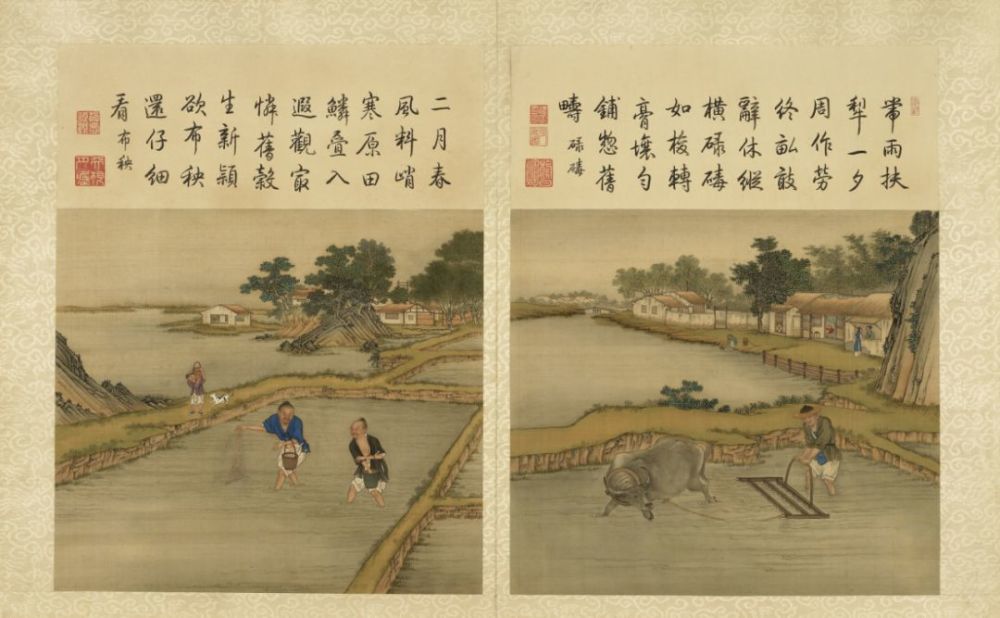 帶雨扶
犁一夕
周作勞
終畝敢
辭休縱
橫碌碡
如梭轉
膏壤勻
鋪惣舊
疇 碌碡
二月春
風料峭
寒原田
鱗疊入
遐觀冣
憐舊穀
生新穎
欲布秧
還仔細
看 布秧